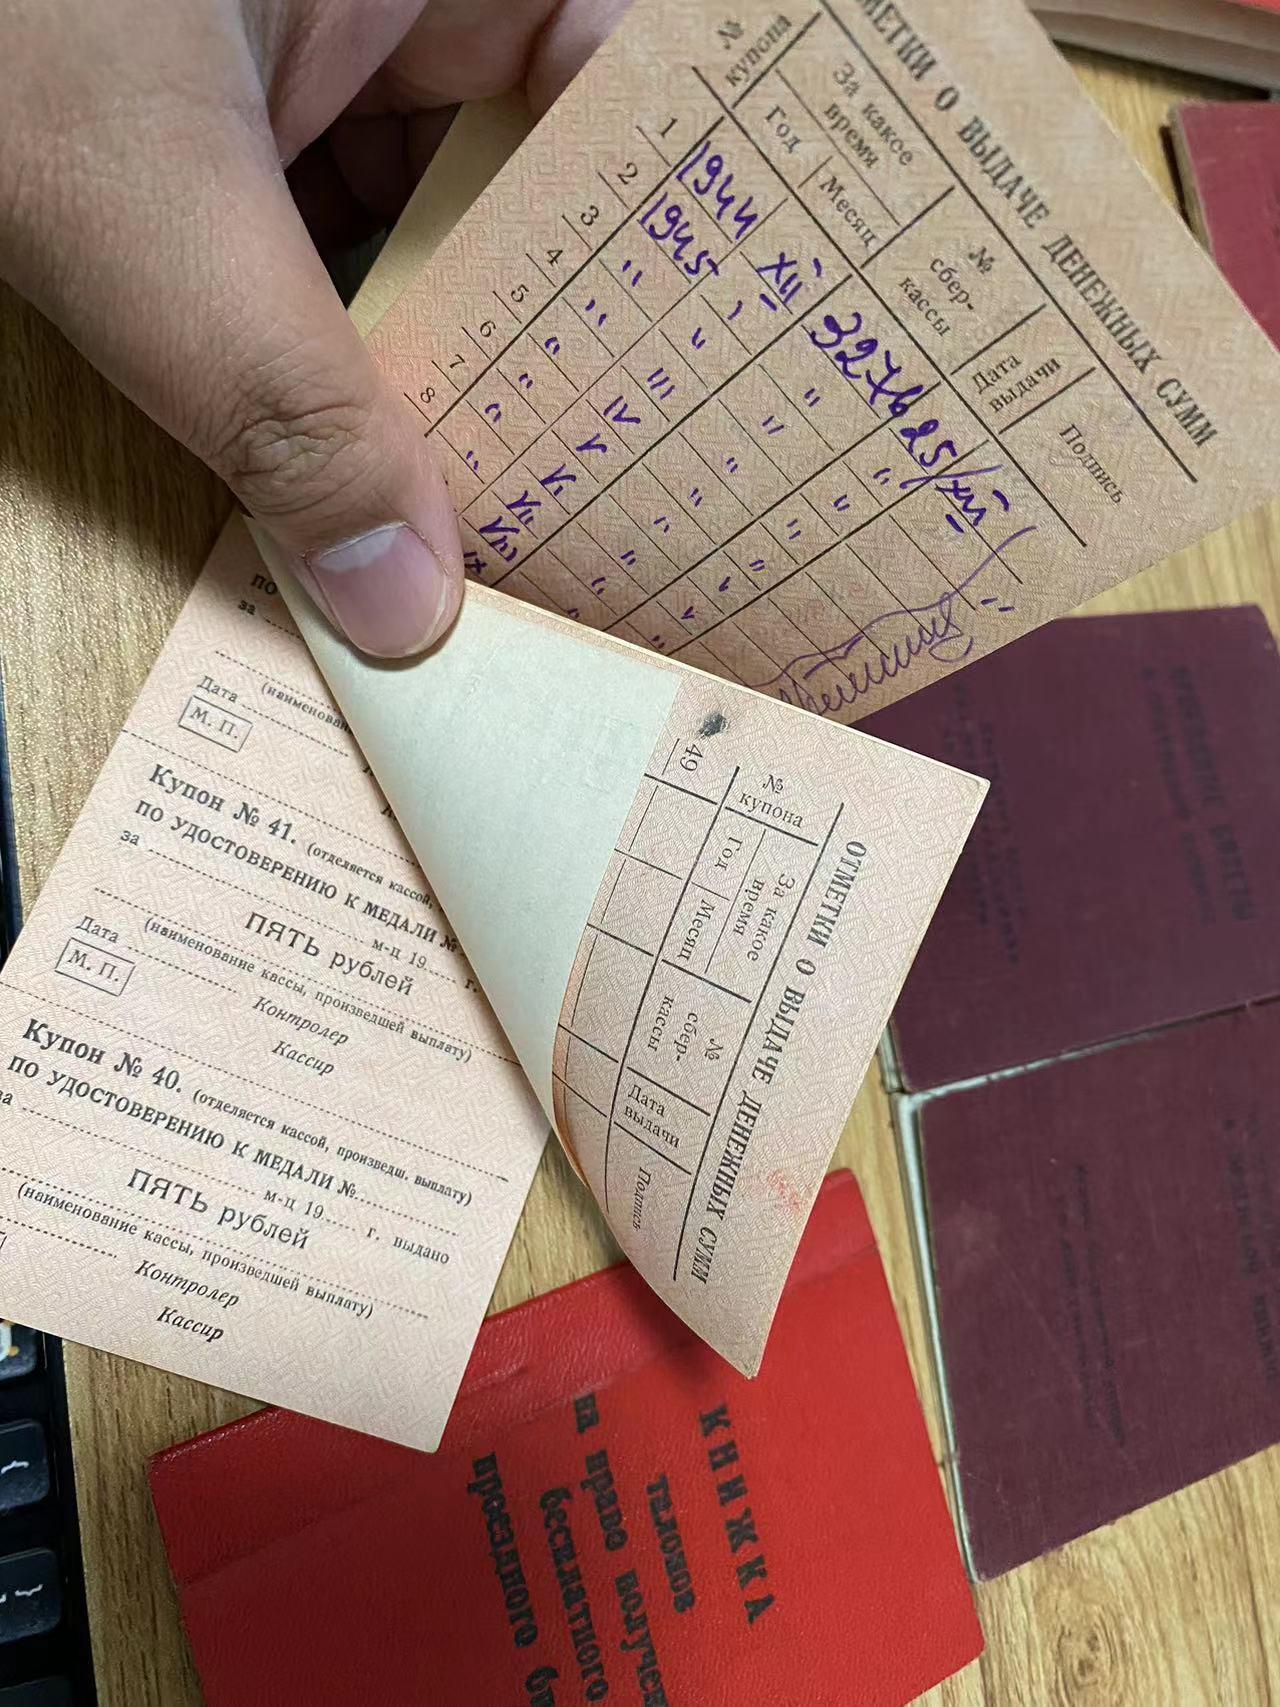 ОТМЕТКИ О ВЫДАЧЕ ДЕНЕЖНЫХ СУММ
№ купона
За какое время
Год
Месяц
№ сбер-кассы
Дата выдачи
Подпись
1 1944 XII 3276 25/XII
2 1945 " " "
3 " " "
4 " III " "
5 " IV " "
6 " V " "
7 " VI " "
8 " VII " "
VIII
IX
49
№ купона
За какое время
Год
Месяц
№ сбер-кассы
Дата выдачи
Подпись
ОТМЕТКИ О ВЫДАЧЕ ДЕНЕЖНЫХ СУММ
ПО
за
(наименован
Дата
М. П.
Купон № 41. (отделяется кассой,
ПО УДОСТОВЕРЕНИЮ К МЕДАЛИ №
за м-ц 19 г.
ПЯТЬ рублей
(наименование кассы, произведшей выплату)
Дата
М. П.
Контролер
Кассир
Купон № 40. (отделяется кассой, произведш. выплату)
ПО УДОСТОВЕРЕНИЮ К МЕДАЛИ №
за м-ц 19 г. выдано
ПЯТЬ рублей
(наименование кассы, произведшей выплату)
Контролер
Кассир
КНИЖКА
талонов
на право получен
бесплатного
проездного б